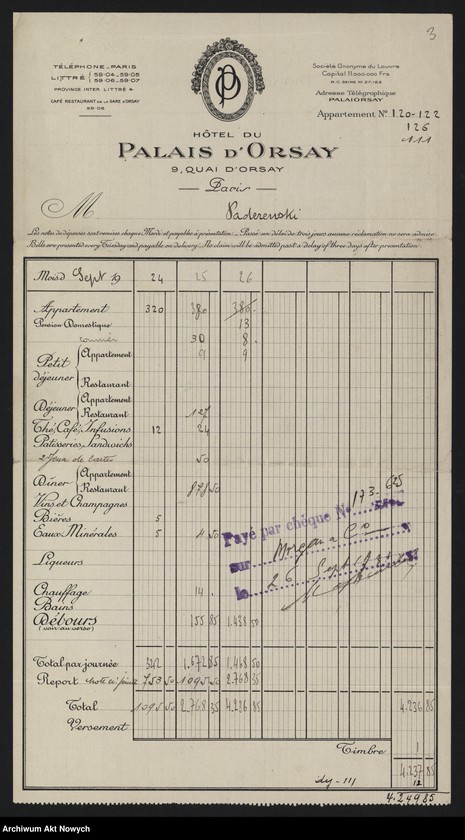 3
TÉLÉPHONE-PARIS
LITTRÉ 59-04-59-05
59-06-59-07
PROVINCE INTER LITTRÉ 4
CAFÉ RESTAURANT DE LA GARE D'ORSAY
59-08
Société Anonyme du Louvre
Capital 11.000.000 Frs
Adresse Télégraphique
PALAIORSAY
Appartement Nº 120-122
126
111
HÔTEL DU
PALAIS D'ORSAY
9, QUAI D'ORSAY
Paris
M Paderenski
Les notes de dépenses sont remises chaque Mardi et payables à présentation. Passé un délai de trois jours aucune réclamation ne sera admise
Bills are presented every Tuesday and payable on delivery. No claim will be admitted past a delay of three days after presentation
Mois d Sept 19 24 25 26
Appartement 320 380 380
Pension Domestique 13
courrier 30 8
Petit déjeuner Appartement 9 9
Restaurant
Déjeuner Appartement
Restaurant 127
Thé, Café, Infusions 12 24
Patisseries, Sandwichs
2 Jeux de cartes 50
Dîner Appartement
Restaurant 878 50
Vins et Champagnes
Bières 5
Eaux Minérales 5 4 50
Liqueurs
Payé par chèque Nº 173.625
sur Morgan & Co
le 26 Sept
Chauffage 14
Bains
Débours 155 85 1.438 50
(voir au verso)
Total par journée 342 1.672 85 1.468 50
Report 753 50 1095 50 2.768 35
Total 1095 50 2.768 35 4.236 85 4.236 85
Versement
Timbre 1
4.237 85
12
4.249 85
Archiwum Akt Nowych